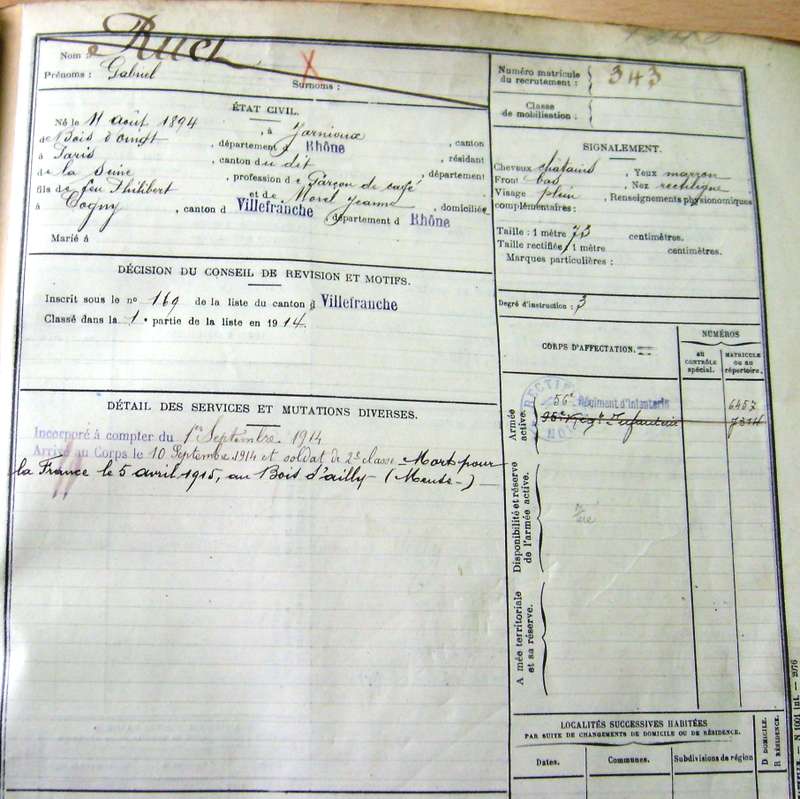 Nom :
Prénoms : Gabriel
Surnoms :
X
Numéro matricule du recrutement : 343
Classe de mobilisation :
ÉTAT CIVIL.
Né le 11 août 1894, à Jarnioux, canton
de Bois d'oingt, département d Rhône, résidant
à Paris, canton du dit, département
de la Seine, profession de Garçon de café
fils de feu Philibert et de Morel Jeanne, domiciliés
à Cogny, canton d Villefranche, département d Rhône
Marié à
SIGNALEMENT.
Cheveux châtains, Yeux marron
Front bas, Nez rectiligne
Visage plein, Renseignements physionomiques
complémentaires :
Taille : 1 mètre 73 centimètres.
Taille rectifiée 1 mètre centimètres.
Marques particulières :
Degré d'instruction : 3
DÉCISION DU CONSEIL DE REVISION ET MOTIFS.
Inscrit sous le n° 169 de la liste du canton d Villefranche
Classé dans la 1e partie de la liste en 1914.
DÉTAIL DES SERVICES ET MUTATIONS DIVERSES.
Incorporé à compter du 1er Septembre 1914
Arrivé au Corps le 10 Septembre 1914 et soldat de 2e classe Mort pour
la France le 5 avril 1915, au Bois d'ailly (Meuse)
CORPS D'AFFECTATION.
NUMÉROS
AU CONTRÔLE spécial.
MATRICULE ou au répertoire.
Armée active.
56e Régiment d'Infanterie 6457
Disponibilité et réserve de l'armée active.
A mée territoriale et sa réserve.
LOCALITÉS SUCCESSIVES HABITÉES
PAR SUITE DE CHANGEMENTS DE DOMICILE OU DE RÉSIDENCE.
Dates.
Communes.
Subdivisions de région
D DOMICILE.
R RÉSIDENCE.